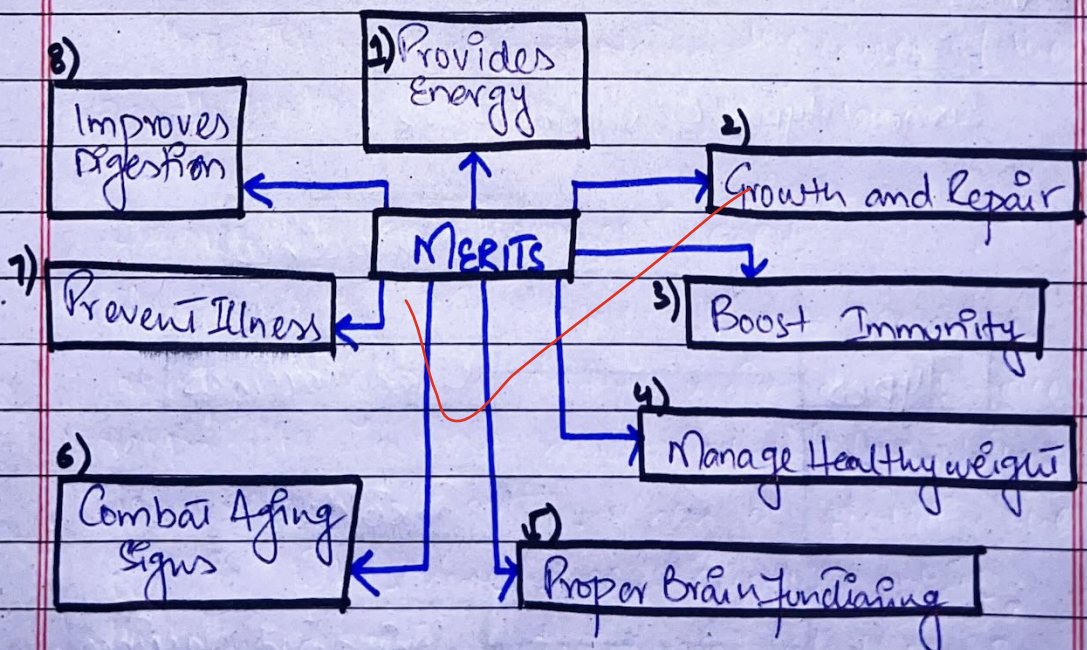 MERITS
1) Provides
Energy
2)
Growth and Repair
3) Boost Immunity
4)
Manage Healthy weight
5)
Proper Brain functioning
6)
Combat Aging
Signs
7) Prevent Illness
8)
Improves
Digestion